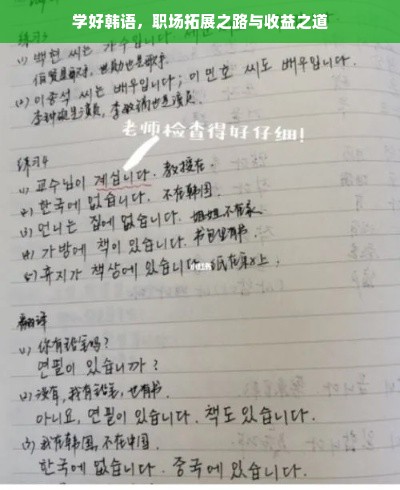 学好韩语，职场拓展之路与收益之道
练习3
(1) 백현 씨는 가수입니다.
(2) 이종석 씨는 배우입니다; 이민호 씨도 배우입니다.
李钟硕是演员，李敏镐也是演员.
老师检查得好仔细!
练习4
(1) 교수님이 계십니다. 教授在.
(2) 한국에 없습니다. 不在韩国.
(3) 언니는 집에 없습니다. 姐姐不在家
(4) 가방에 책이 있습니다. 书包里有书.
(5) 휴지가 책상에 있습니다. 纸在桌上.
小红书
翻译
(1) 你有铅笔吗?
연필이 있습니까?
(2) 没有, 我有铅笔, 也有书.
아니요, 연필이 있습니다. 책도 있습니다.
(3) 我在韩国, 不在中国.
한국에 없습니다. 중국에 있습니다.